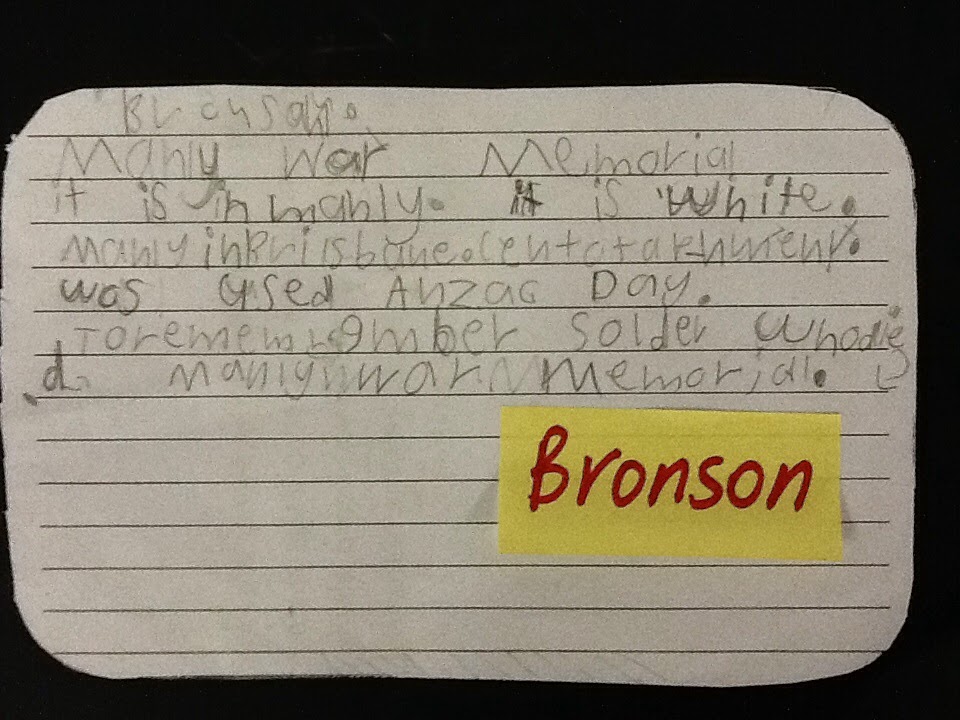 Bronson.
Manly War Memorial
it is in manly. it is white.
manly in Brisbane.
was used Anzac Day.
To remember solder whodie
d. Manly war Memorial.
Bronson